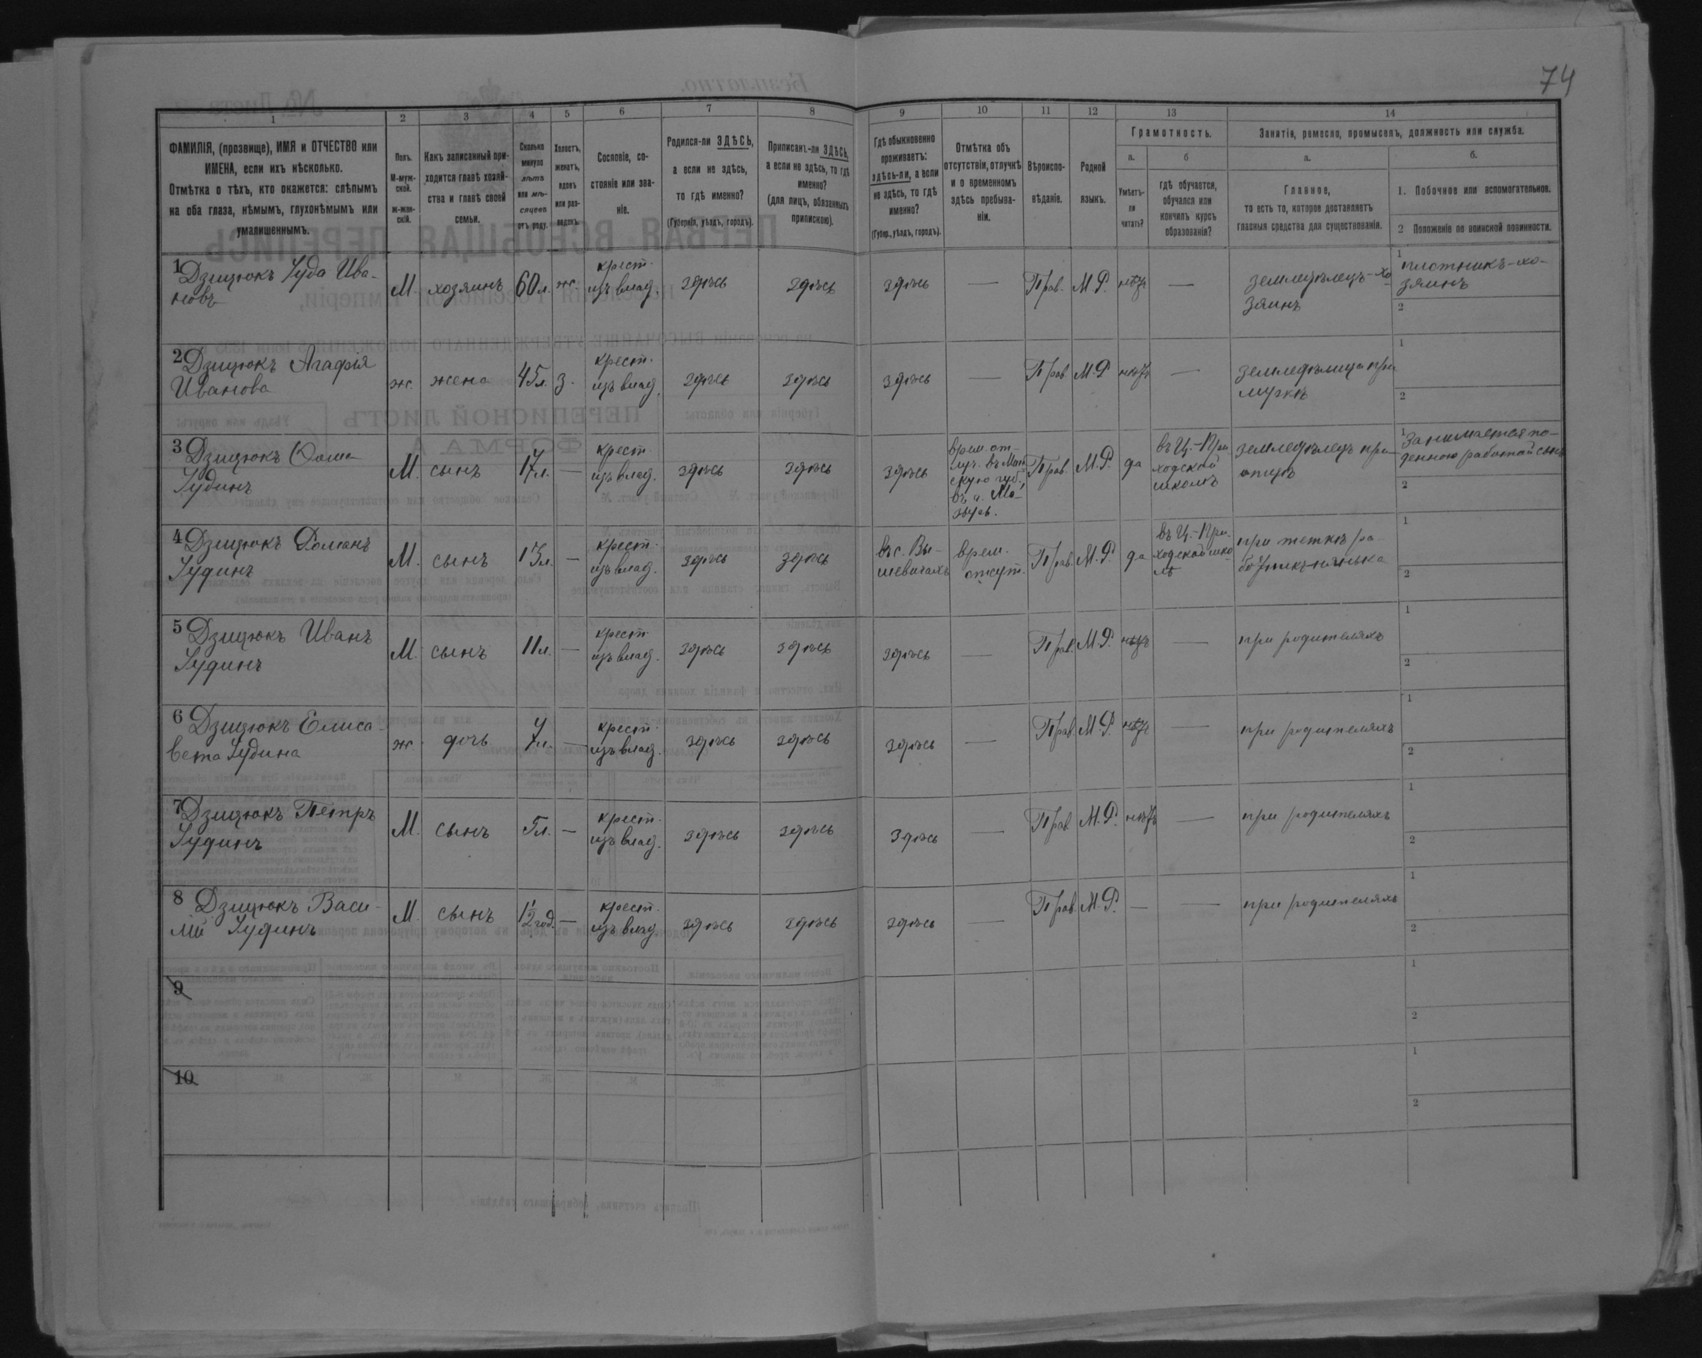 74
1 2 3 4 5 6 7 8 9 10 11 12 13 14
ФАМИЛІЯ, (прозвище), ИМЯ и ОТЧЕСТВО или
ИМЕНА, если ихъ нѣсколько.
Отмѣтка о тѣхъ, кто окажется: слѣпымъ
на оба глаза, нѣмымъ, глухонѣмымъ или
умалишеннымъ.
Полъ.
М-муж-
ской.
Ж-жен-
скій.
Какъ записанный при-
ходится главѣ хозяй-
ства и главѣ своей
семьи.
Сколько
минуло
лѣтъ
или мѣ-
сяцевъ
отъ роду.
Холостъ,
женатъ,
вдовъ
или раз-
веденъ.
Сословіе, со-
стояніе или зва-
ніе.
Родился-ли ЗДѢСЬ,
а если не здѣсь,
то гдѣ именно?
(Губернія, уѣздъ, городъ).
Приписанъ-ли ЗДѢСЬ,
а если не здѣсь, то гдѣ
именно?
(для лицъ, обязанныхъ
припискою).
Гдѣ обыкновенно
проживаетъ:
здѣсь-ли, а если
не здѣсь, то гдѣ
именно?
(Губер., уѣздъ, городъ).
Отмѣтка объ
отсутствіи, отлучкѣ
и о временномъ
здѣсь пребыва-
ніи.
Вѣроиспо-
вѣданіе.
Родной
языкъ.
Грамотность.
а.
Умѣетъ-
ли
читать?
б
гдѣ обучается,
обучался или
кончилъ курсъ
образованія?
Занятія, ремесло, промыселъ, должность или служба.
а.
Главное,
то есть то, которое доставляетъ
главныя средства для существованія.
б.
1. Побочное или вспомогательное.
2 Положеніе по воинской повинности.
1 Дзицюкъ Іуда Ива-
новъ
М. хозяинъ 60 л. ж. крест. изъ влад. здѣсь здѣсь здѣсь — Прав. М.Р. нѣтъ — земледѣлецъ-хо-
зяинъ
1 плотникъ-хо-
зяинъ
2
2 Дзицюкъ Агафія
Иванова
ж. жена 45 л. з. крест. изъ влад. здѣсь здѣсь здѣсь — Прав. М.Р. нѣтъ — земледѣлица при
мужѣ
1
2
3 Дзицюкъ Ѳома
Іудинъ
М. сынъ 17 л. — крест. изъ влад. здѣсь здѣсь здѣсь врем. от
Прав. М.Р. да въ Ц.-При-
ходской
школѣ
земледѣлецъ при
отцѣ
1 Занимается по-
денною работой
2
4 Дзицюкъ Романъ
Іудинъ
М. сынъ 13 л. — крест. изъ влад. здѣсь здѣсь въ с. Вы-
шевичахъ
врем.
отсут.
Прав. М.Р. да въ Ц.-При-
ходской шко
лѣ
при теткѣ
1
2
5 Дзицюкъ Иванъ
Іудинъ
М. сынъ 11 л. — крест. изъ влад. здѣсь здѣсь здѣсь — Прав. М.Р. нѣтъ — при родителяхъ
1
2
6 Дзицюкъ Елиса-
вета Іудина
ж. дочь 7 л. — крест. изъ влад. здѣсь здѣсь здѣсь — Прав. М.Р. нѣтъ — при родителяхъ
1
2
7 Дзицюкъ Петръ
Іудинъ
М. сынъ 5 л. — крест. изъ влад. здѣсь здѣсь здѣсь — Прав. М.Р. нѣтъ — при родителяхъ
1
2
8 Дзицюкъ Васи-
лій Іудинъ
М. сынъ 1½ год. — крест. изъ влад. здѣсь здѣсь здѣсь — Прав. М.Р. — — при родителяхъ
1
2
9
1
2
10
1
2